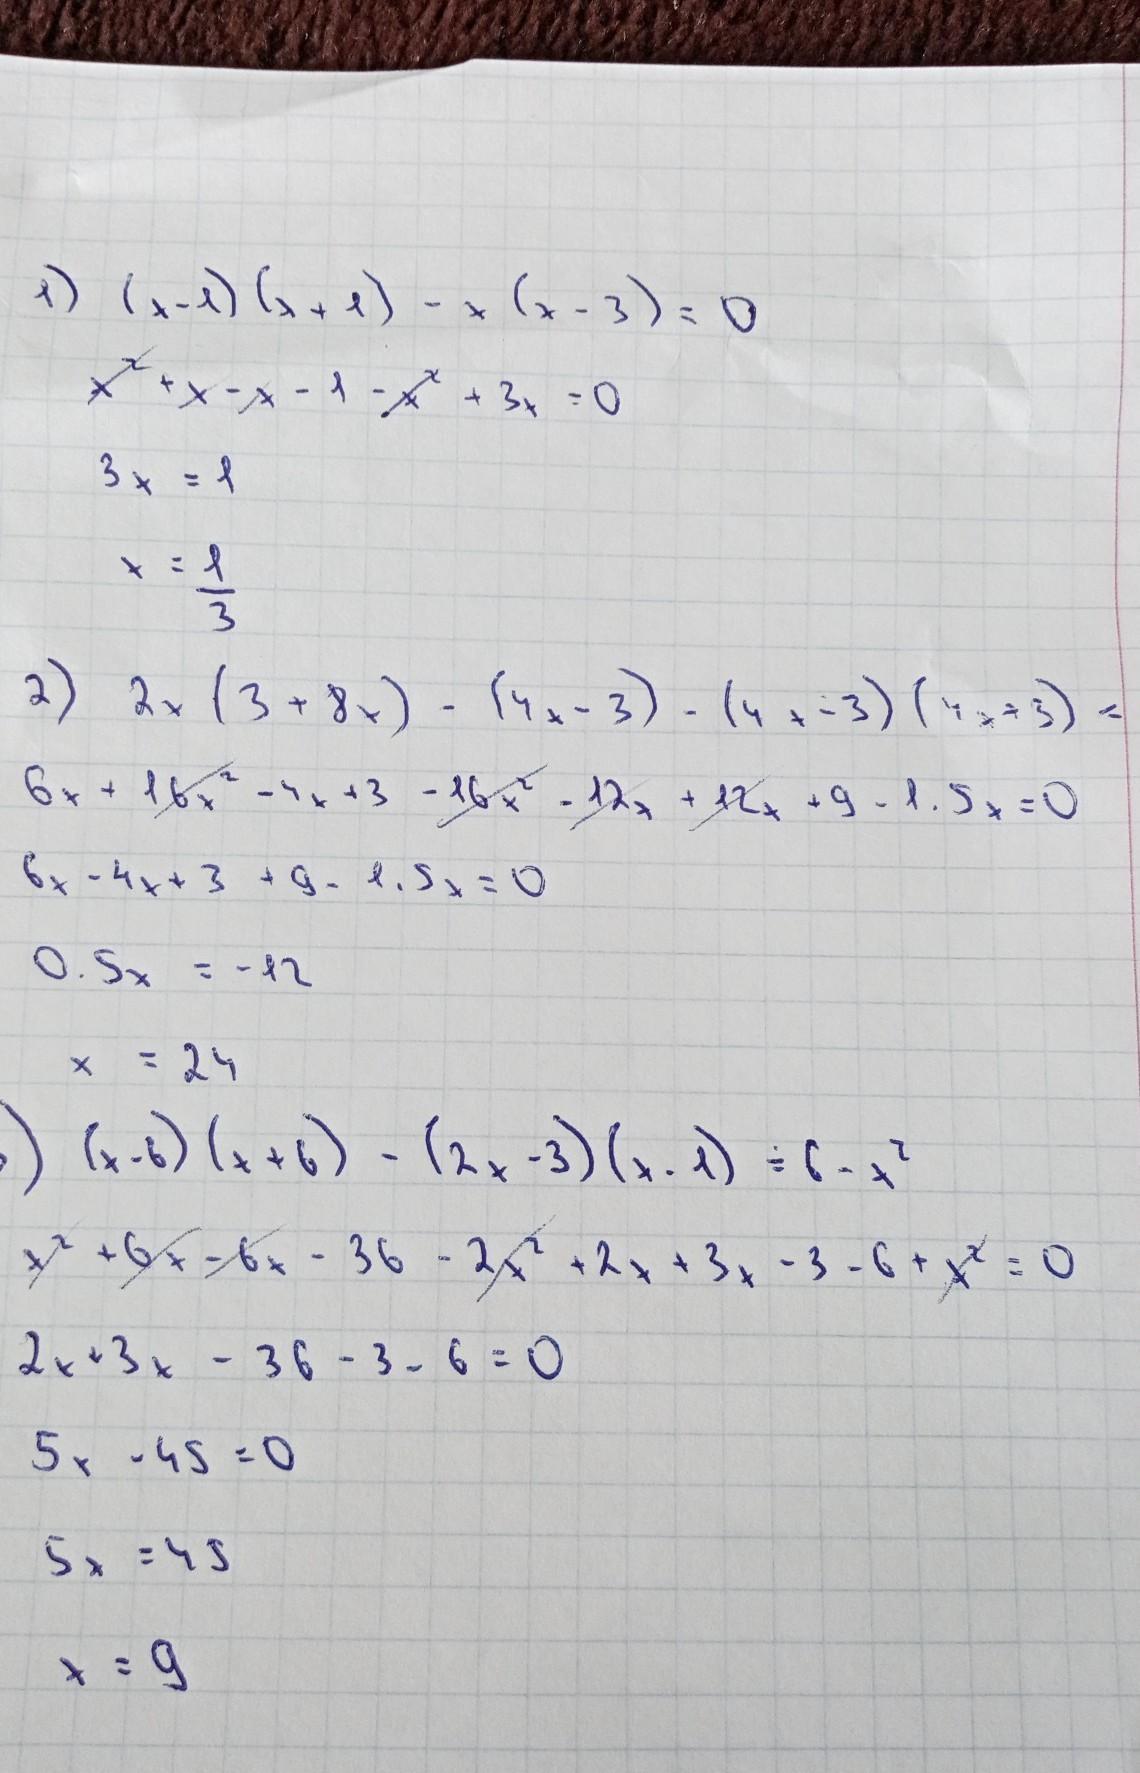 1) (x-1)(x+1) - x(x-3) = 0
x² + x - x - 1 - x² + 3x = 0
3x = 1
x = 1/3
2) 2x(3+8x) - (4x-3) - (4x-3)(4x+3) =
6x + 16x² - 4x + 3 - 16x² - 12x + 12x + 9 - 1.5x = 0
6x - 4x + 3 + 9 - 1.5x = 0
0.5x = -12
x = 24
) (x-6)(x+6) - (2x-3)(x-1) = 6 - x²
x² + 6x - 6x - 36 - 2x² + 2x + 3x - 3 - 6 + x² = 0
2x + 3x - 36 - 3 - 6 = 0
5x - 45 = 0
5x = 45
x = 9